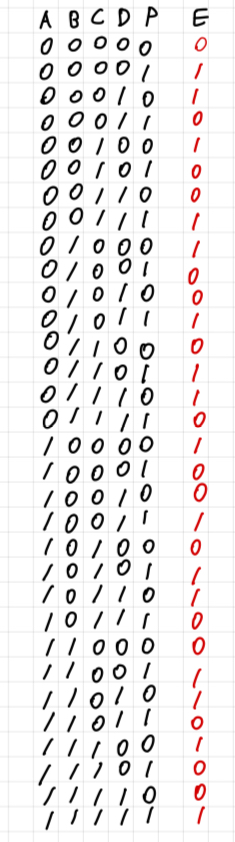 A B C D P E
0 0 0 0 0 0
0 0 0 0 1 1
0 0 0 1 0 1
0 0 0 1 1 0
0 0 1 0 0 1
0 0 1 0 1 0
0 0 1 1 0 0
0 0 1 1 1 1
0 1 0 0 0 1
0 1 0 0 1 0
0 1 0 1 0 0
0 1 0 1 1 1
0 1 1 0 0 0
0 1 1 0 1 1
0 1 1 1 0 1
0 1 1 1 1 0
1 0 0 0 0 1
1 0 0 0 1 0
1 0 0 1 0 0
1 0 0 1 1 1
1 0 1 0 0 0
1 0 1 0 1 1
1 0 1 1 0 1
1 0 1 1 1 0
1 1 0 0 0 0
1 1 0 0 1 1
1 1 0 1 0 1
1 1 0 1 1 0
1 1 1 0 0 1
1 1 1 0 1 0
1 1 1 1 0 0
1 1 1 1 1 1